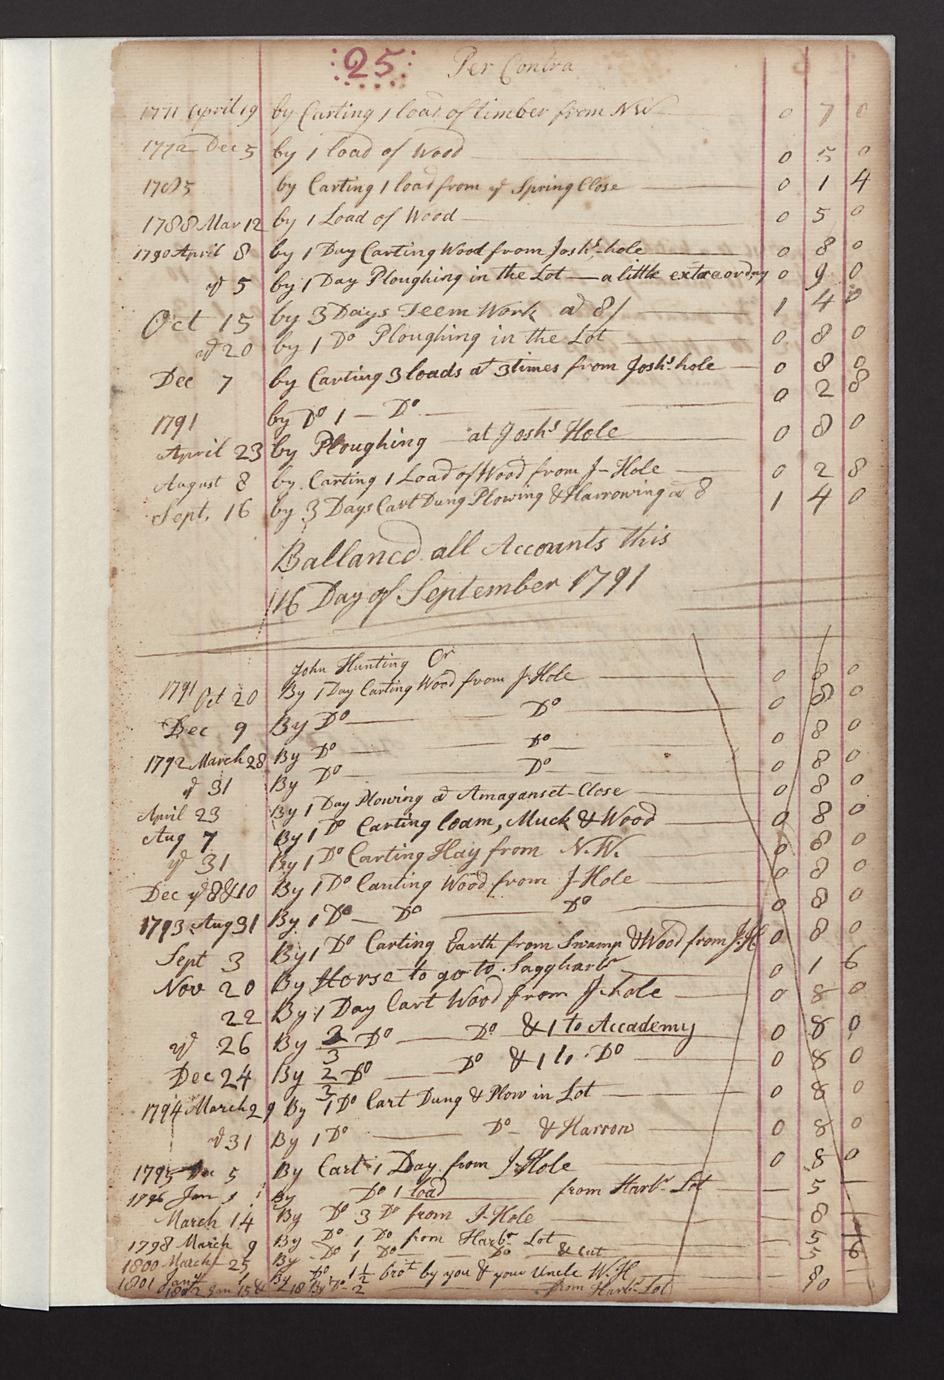 25 Per Contra
1771 April 19 by Carting 1 load of timber from NW 0 7 0
1772 Dec 5 by 1 load of Wood 0 5 0
1785 by Carting 1 load from ye Spring Close 0 1 4
1788 Mar 12 by 1 Load of Wood 0 5 0
1790 April 8 by 1 Day Carting Wood from Joshs hole 0 8 0
ye 5 by 1 Day Ploughing in the Lot — a little extraordry 0 9 0
Oct 15 by 3 Days Teem Work at 8/ 1 4 0
ye 20 by 1 Do Ploughing in the Lot 0 8 0
Dec 7 by Carting 3 loads at 3 times from Joshs hole 0 8 0
by Do 1 — Do 0 2 8
1791
April 23 by Ploughing at Joshs Hole 0 8 0
August 8 by Carting 1 Load of Wood from J-Hole 0 2 8
Sept. 16 by 3 Days Cart Dung Plowing & Harrowing at 8 1 4 0
Ballancd all Accounts this
16 Day of September 1791
John Hunting Cr
1791 Oct 20 By 1 Day Carting Wood from J-Hole 0 8 0
Dec 9 By Do Do 0 8 0
1792 March 28 By Do Do 0 8 0
ye 31 By Do Do 0 8 0
April 23 By 1 Day Plowing at Amaganset Close 0 8 0
Aug 7 By 1 Do Carting loam, Muck & Wood 0 8 0
ye 31 By 1 Do Carting Hay from N.W. 0 8 0
Dec ye 8 & 10 By 1 Do Carting Wood from J-Hole 0 8 0
1793 Aug 31 By 1 Do — Do Do 0 8 0
Sept 3 By 1 Do Carting Earth from Swamp & Wood from J.H 0 8 0
Nov 20 By Horse to go to Saggharbr 0 1 6
22 By 1 Day Cart Wood from J-hole 0 8 0
ye 26 By 2/3 Do Do & 1 to Accademy 0 8 0
Dec 24 By 2/3 Do Do & 1 to Do 0 8 0
1794 March 29 By 1 Do Cart Dung & Plow in Lot 0 8 0
ye 31 By 1 Do Do & Harrow 0 8 0
1795 Dec 5 By Cart 1 Day from J-Hole 0 8 0
1796 Jan 1 By Do 1 load from Harbr Lot — 5 —
March 14 By Do 3 Do from J-Hole — 8
1798 March 9 By Do 1 Do from Harbr Lot — 5
1800 March 25 By Do 1 Do Do & Cut — 5 6
1801 Jany By Do 1 1/2 brot by you & your Uncle W.H — 8
1802 Jan 15 & 18 By Do 2 from Harbr Lot 10